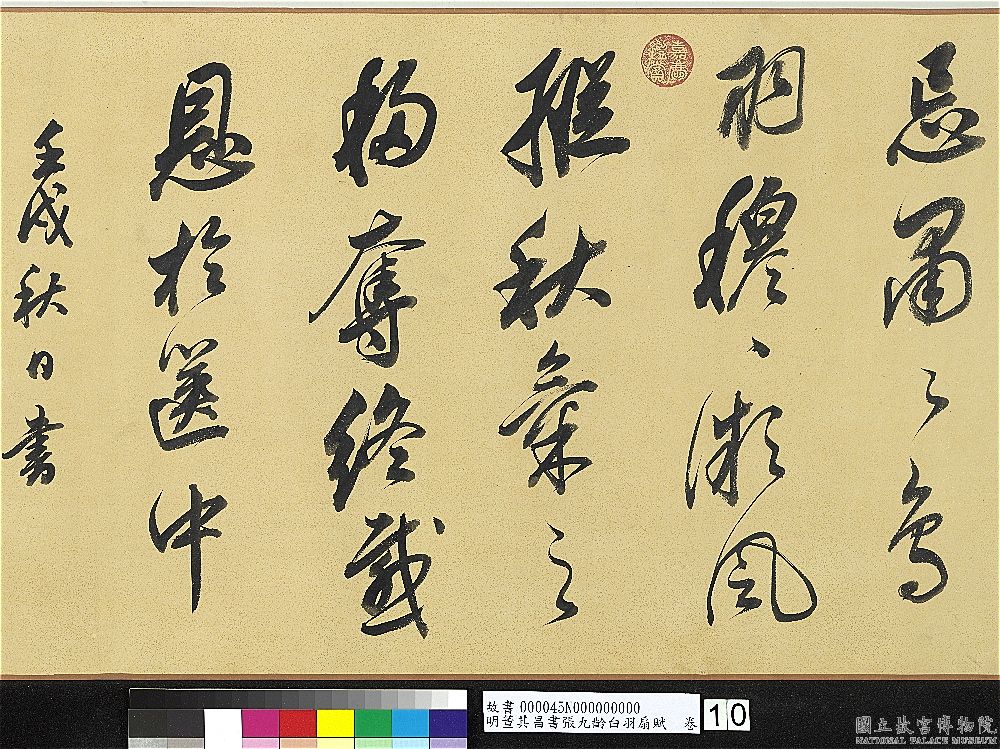 忌肅〻鳥
羽穆〻微風
縱秋氣之
移奪終感
恩於篋中
壬戌秋日書
嘉慶鑑賞
故書 000045N000000000
明董其昌書張九齡白羽扇賦 卷
10
國立故宮博物院
NATIONAL PALACE MUSEUM